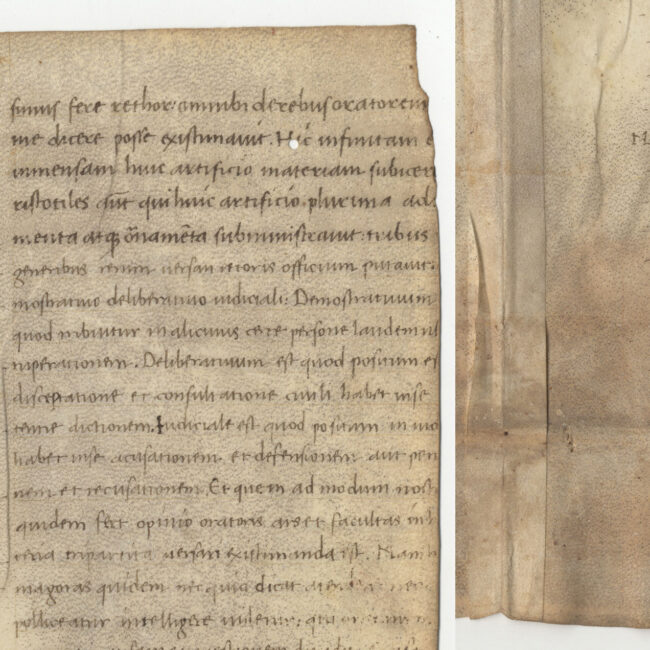 simus fere rethor; omnibus de rebus oratorem
me dicere posse existimavit. Hic infinitam e
inmensam huic artificio materiam subicer
ristotiles aut qui huic artificio plurima adi
menta atq; ornamenta subministravit: tribus
generibus rerum versari retoris officium putavit:
mostrativo deliberativo iudiciali: Demostrativum
quod tribuitur in alicuius certe persone laudem ul
tuperationem. Deliberativum est quod positum es
disceptatione et consultatione civili habet inse
tentie dictionem. Iudiciale est quod positum in iud
habet inse acusationem. et defensionem aut peti
nem et recusationem. Et quem ad modum nost
quidem fert opinio oratoris ars et facultas in h
teria tripartita versari existimanda est. Nam h
magoras quidem nec quid dicat atendere nec
polliceatur intelligere videtur: qui